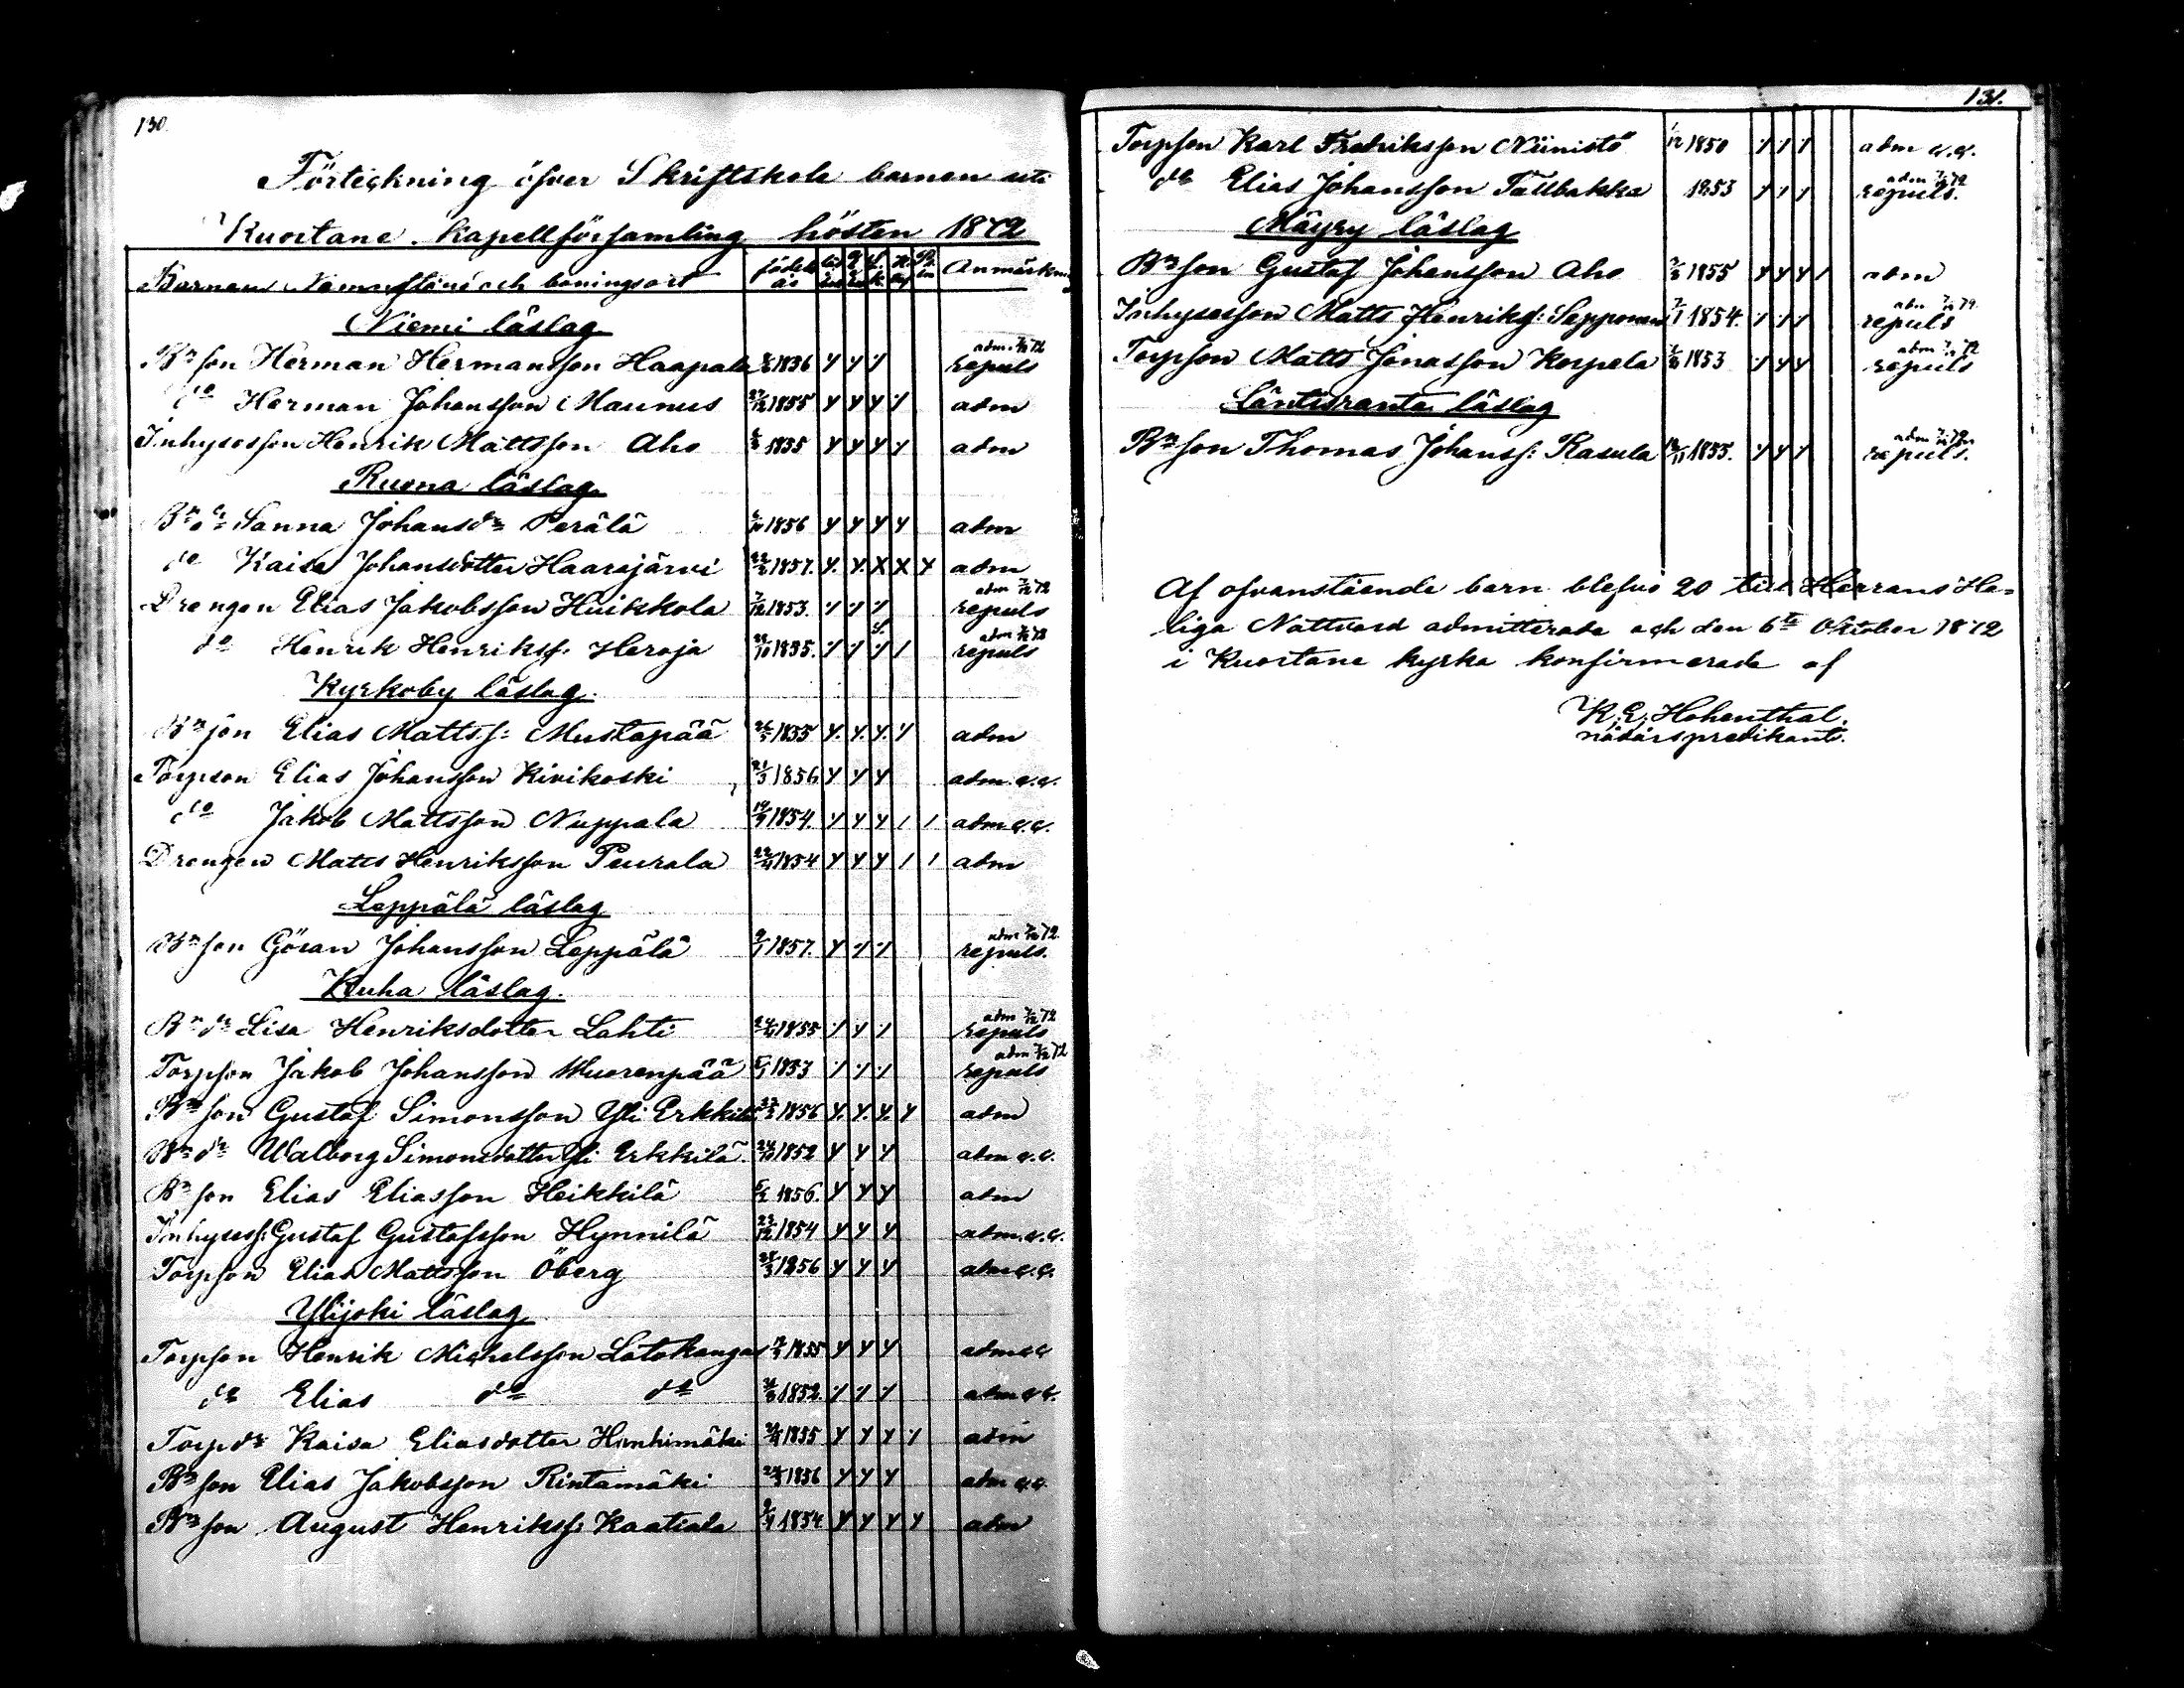 130.
Förteckning öfver Skriftskole barnen uti
Kuortane kapellförsamling hösten 1872
Barnens Namn, stånd och boningsort födelse år Anmärkn.
Niemi läslag
Bn son Herman Hermansson Haapala 1856 y y ·/. repuls adm. 7/12 72
do Herman Johansson Maunus 27/12 1855 y y y ·/. adm
Inhysesson Henrik Mattsson Aho 1855 y y y y adm
Ruona läslag
Bn dr Sanna Johansdr Perälä 6/10 1856 y y y y adm
do Kaisa Johansdotter Haarajärvi 22/2 1857. y. y. x x y adm
Drengen Elias Jakobsson Huikkola 7/12 1853. ·/. ·/. ·/. repuls adm 7/12 72
do Henrik Henrikss: Heroja 29/10 1855. ·/. ·/. ·/. / repuls adm 7/12 72
Kyrkoby läslag.
Bn son Elias Mattss: Mustapää 1855 y. y. y. ·/. adm
Torpson Elias Johansson Kivikoski 21/3 1856 y y y adm. q.q.
do Jakob Mattsson Nuppala 19/9 1854. ·/. y y / / adm q.q.
Drengen Matts Henriksson Peurala 1854 y y y / / adm
Leppälä läslag
Bn son Göran Johansson Leppälä 9/1 1857. y ·/. ·/. repuls. adm 7/12 72.
Kuha läslag.
Bn dr Lisa Henriksdotter Lahti 1855 ·/. y ·/. repuls adm 7/12 72
Torpson Jakob Johansson Wuorenpää 1853 ·/. ·/. ·/. repuls adm 7/12 72
Bn son Gustaf Simonsson Yli Erkkilä 1856 y. y. y. y adm
Bn dr Walborg Simonsdotter Yli Erkkilä. 24/10 1852 y y y adm q.q.
Bn son Elias Eliasson Heikkilä 1856. y y y adm
Inhysess: Gustaf Gustafsson Hynnilä 23/12 1854 y y y adm. q.q.
Torpson Elias Mattsson Öberg 1856 y y y adm q.q.
Ylijoki läslag
Torpson Henrik Michelsson Latokangas 1855 y y y adm q q
do Elias do do 1852. ·/. ·/. ·/. adm q q.
Torpdr Kaisa Eliasdotter Hinkimäki 1855 y y y ·/. adm
Bn son Elias Jakobsson Rintamäki 1856 y y y adm q.q.
Bn son August Henrikss: Kaatiala 1854 y y y y adm
131.
Torpson Karl Fredriksson Niinistö 1/12 1850 ·/. ·/. ·/. adm q.q.
do Elias Johansson Tallbakka 1853 ·/. ·/. ·/. repuls. adm 7/12 72
Mäyry läslag
Bn son Gustaf Johansson Aho 1855 y y y / adm
Inhysesson Matts Henrikss: Sepponen 7/1 1854. ·/. ·/. ·/. repuls adm 7/12 72.
Torpson Matts Jonasson Korpela 1853 ·/. y y repuls adm 7/12 72
Länsiranta läslag
Bn son Thomas Johanss: Rasula 1855. y y y repuls. adm 7/12 72.
Af ofvanstående barn blefvo 20 till Herrans He-
liga Nattvard admitterade och den 6te Oktober 1872
i Kuortane kyrka konfirmerade af
K. E. Hohenthal.
nådårspredikant.